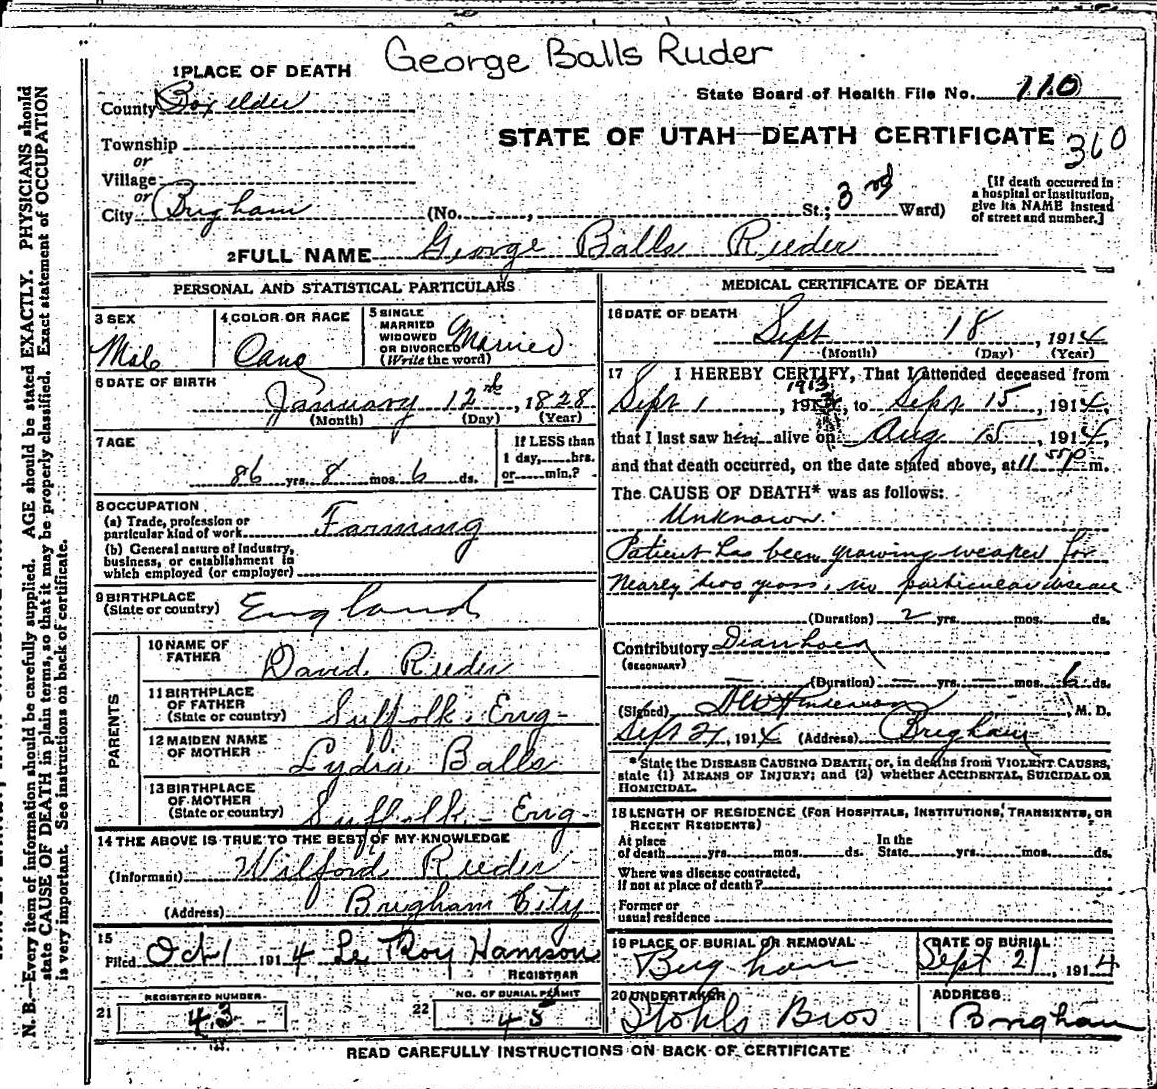 George Balls Ruder
1 PLACE OF DEATH
County Boxelder
State Board of Health File No. 110
Township
STATE OF UTAH—DEATH CERTIFICATE
360
or
Village
or
City Brigham (No. , St.; 3rd Ward)
[If death occurred in a hospital or institution, give its NAME instead of street and number.]
2 FULL NAME George Balls Rieder
PERSONAL AND STATISTICAL PARTICULARS
3 SEX
Male
4 COLOR OR RACE
Cauc
5 SINGLE MARRIED WIDOWED OR DIVORCED (Write the word)
Married
6 DATE OF BIRTH
January 12nd, 1828
(Month) (Day) (Year)
7 AGE
86 yrs. 8 mos. 6 ds.
If LESS than 1 day, hrs. or min.?
8 OCCUPATION
(a) Trade, profession or particular kind of work Farming
(b) General nature of industry, business, or establishment in which employed (or employer)
9 BIRTHPLACE
(State or country) England
PARENTS
10 NAME OF FATHER David Rieder
11 BIRTHPLACE OF FATHER (State or country) Suffolk, Eng-
12 MAIDEN NAME OF MOTHER Lydia Balls
13 BIRTHPLACE OF MOTHER (State or country) Suffolk - Eng-
14 THE ABOVE IS TRUE TO THE BEST OF MY KNOWLEDGE
(Informant) Wilford Rieder
(Address) Brigham City
15
Filed Oct 1 1914 Le Roy Hamson
REGISTRAR
21 REGISTERED NUMBER
43
22 NO. OF BURIAL PERMIT
45
MEDICAL CERTIFICATE OF DEATH
16 DATE OF DEATH
Sept 18, 1914
(Month) (Day) (Year)
17 I HEREBY CERTIFY, That I attended deceased from
1913
Sept 1, 191 , to Sept 15, 1914,
that I last saw him alive on Aug 15, 1914,
and that death occurred, on the date stated above, at 11 50 P m.
The CAUSE OF DEATH* was as follows:
Unknown.
Patient has been growing weaker for
nearly two years, no particular disease
(Duration) 2 yrs. mos. ds.
Contributory Diarrhoea
(SECONDARY)
(Duration) — yrs. — mos. 6 ds.
(Signed) , M. D.
Sept 21, 1914 (Address) Brigham
*State the DISEASE CAUSING DEATH, or, in deaths from VIOLENT CAUSES, state (1) MEANS OF INJURY; and (2) whether ACCIDENTAL, SUICIDAL OR HOMICIDAL.
18 LENGTH OF RESIDENCE (FOR HOSPITALS, INSTITUTIONS, TRANSIENTS, OR RECENT RESIDENTS)
At place of death yrs. mos. ds. In the State yrs. mos. ds.
Where was disease contracted, if not at place of death?
Former or usual residence
19 PLACE OF BURIAL OR REMOVAL
Brigham
DATE OF BURIAL
Sept 21, 1914
20 UNDERTAKER
Stohls Bros
ADDRESS
Brigham
READ CAREFULLY INSTRUCTIONS ON BACK OF CERTIFICATE
N. B.—Every item of information should be carefully supplied. AGE should be stated EXACTLY. PHYSICIANS should
state CAUSE OF DEATH in plain terms, so that it may be properly classified. Exact statement of OCCUPATION
is very important. See instructions on back of certificate.